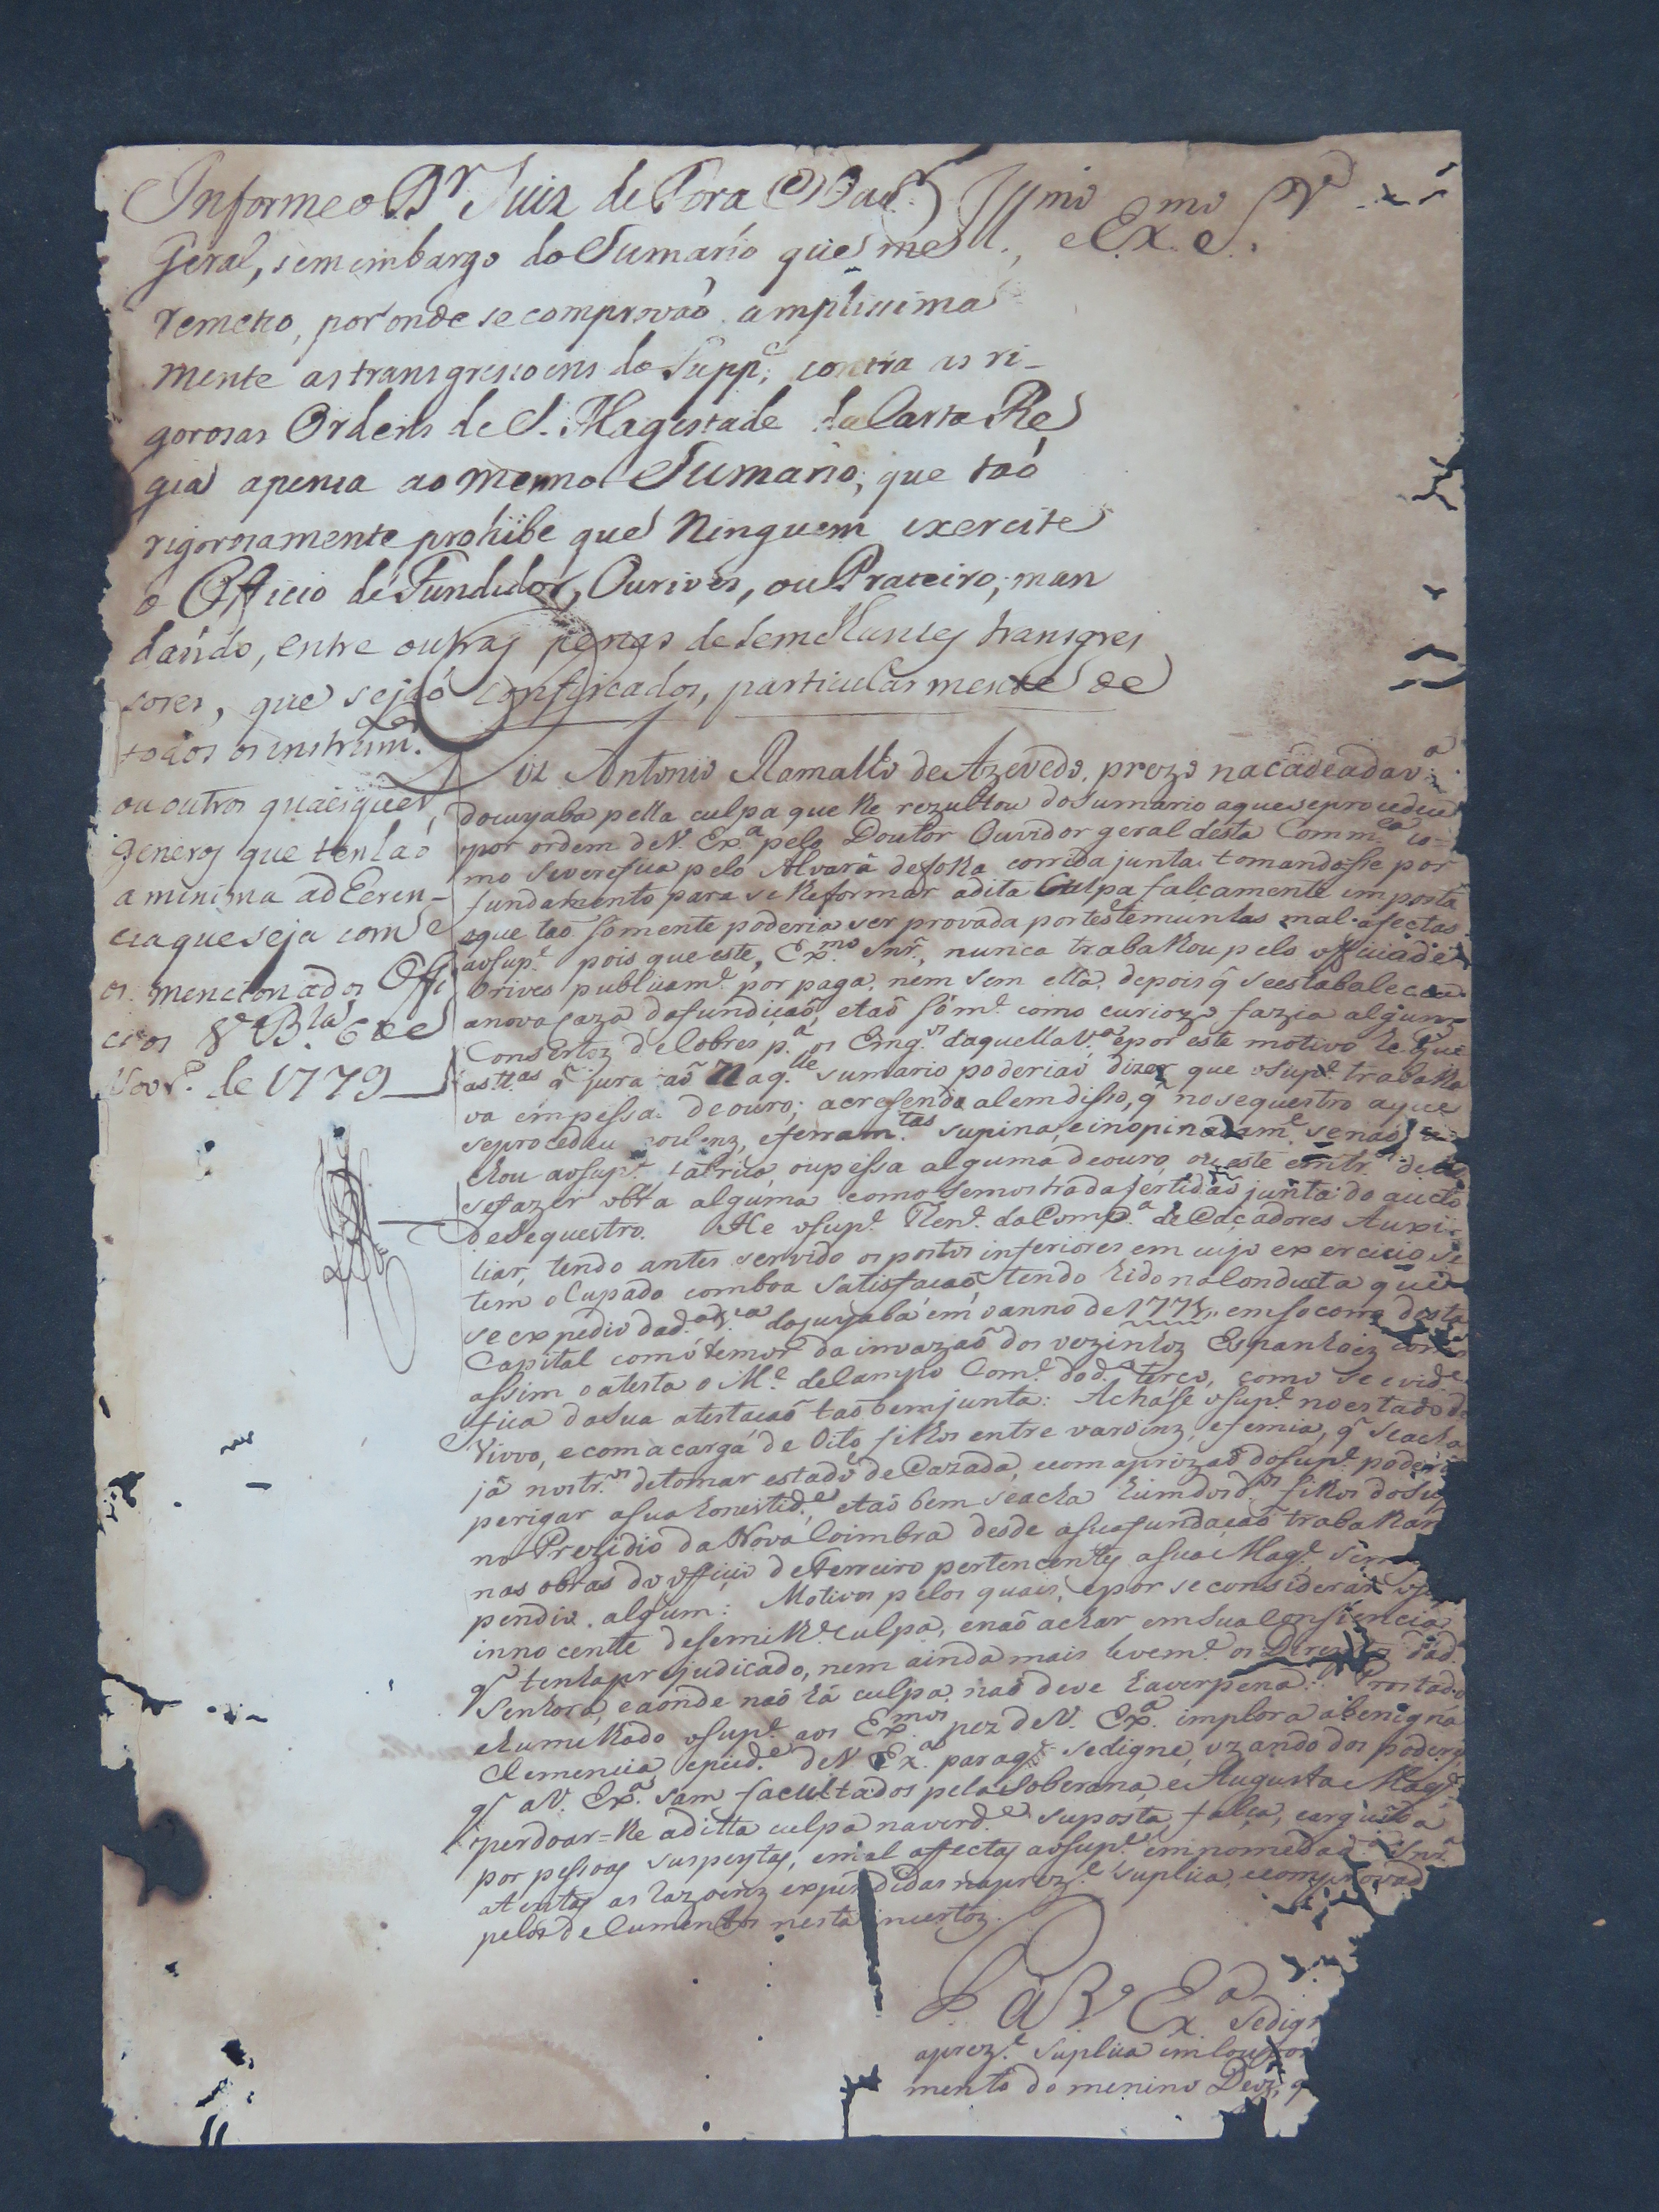 Informe o D.r Juiz de Fora
Geral, sem embargo do Sumario que me
remeteo, por onde se comprovaõ amplissima
mente as transgressoens do Supp.e contra as ri-
gorosas Ordens de S. Magestade da Carta Re
gia apensa ao mesmo Sumario, que taõ
rigorosamente prohibe que Ninguem exercite
o Officio de Fundidor, Ourives, ou Prateiro, man
dando, entre outras penas de semelhantes transgres
sores, que sejaõ confiscados, particularmente de
todos os instrum.tos
ou outros quaesquer
generos que tenhaõ
a minima adheren-
cia que seja com
os mencionados Offi
cios V.a B.la 6 de
Nov.o de 1779
Ill.mo e Ex.mo S.r
Diz Antonio Ramalho de Azevedo, prezo na cadea da V.a
do cuyaba pella culpa que lhe rezultou do sumario a que se procedeu
por ordem de V. Ex.a pelo Doutor Ouvidor geral desta Comm.ca co-
mo se verefica pelo Alvará de folha corrida junta: tomandosse por
fundamento para se lhe formar a dita Culpa falçamente imposta
e que taõ sómente poderia ser provada por testemunhas mal afectas
ao sup.e pois que este, Ex.mo Snr., nunca trabalhou pelo officio de
Orives publicam.e por paga, nem sem ella, depois q̃ se estabaleceu
a nova caza da fundiçaõ, e taõ sóm.e como curiozo fazia alguns
Consertos de Cobres p.a os Eng.os daquella V.a e por este motivo he que
as t.as q̃ juraraõ naq.lle sumario poderiaõ dizer que o sup.e trabalha
va em pessa de ouro; acresendo alem disso, q̃ no sequestro a que
se procedeu ferram.tas supina, e inopinadam.e se naõ a
chou ao sup.e fabrica, ou pessa alguma de ouro, ou este
se fazer obra alguma como se mostra da sertidaõ junta do aucto
de Sequestro. He o sup.e Then.e da Comp.a de Caçadores Auxi-
liar, tendo antes servido os postos inferiores em cujo exercicio se
tem ocupado com boa satisfaçaõ, tendo hido na Conducta que
se expedio da d.a V.a do cuyaba em o anno de 1775 em socorro desta
Capital com o temor da invazaõ dos vezinhos Espanhoiz como
assim o atesta o M.e de Campo Com.e do d.o terço, como se evide
fica da sua atestaçaõ taõ bem junta: Achasse o sup.e no estado de
Viuvo, e com a carga de oito filhos entre varoinz, e femia, q̃ se acha
já nos tr.os de tomar estado de Cazada, e com a prizaõ do sup.e poderá
perigar a sua honestid.e, e taõ bem se acha hum dos d.os filhos do sup
no Prezidio da Nova Coimbra desde a sua fundaçaõ trabalhan
nas obras do officio de Ferreiro pertencentes a sua Mag.e sem
pendio algum: Motivos pelos quais, e por se considerar o su
innocente de semilh.e culpa, e naõ achar em sua Consiencia
q̃ tenha prejudicado, nem ainda mais levem.e os Direitos da d.
Senhora, e aonde naõ há culpa, naõ deve haver pena: Prostado
e humilhado o sup.e aos Ex.mos pez de V. Ex.a implora a benigna
Clemencia, e pied.e de V. Ex.a para q̃ se digne, uzando dos poderes
q̃ a V. Ex.a sam facultados pela Soberana, e Augusta Mag.e
perdoar-lhe a ditta culpa na verd.e suposta, falça, e arguida
por pessoas suspeytas, e mal affectas ao sup.e em nome da d.a Snr.a
atentas as razoenz expendidas na prez.e suplica, e comprovad
pelos documentos nesta incertoz.
P. a V. Ex.a se dig
a prez.e suplica em louvor
mento do menino Deoz, q